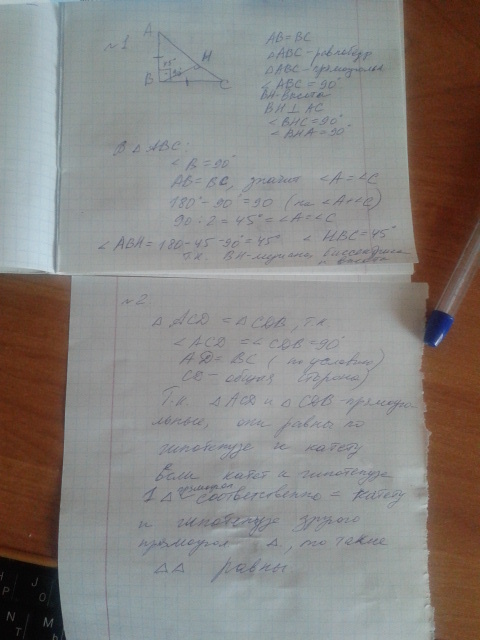 №1
A
B
H
C
45°
AB=BC
△ABC-
△ABC-
<ABC=90°
BH-высота
BH⊥AC
<BHC=90°
<BHA=90°
В △ABC:
<B=90°
AB=BC, значит <A=<C
180°-90°=90 (на <A+<C)
90:2=45°=<A=<C
<ABH=180-45-90°=45° <HBC=45°
т.к. BH-медиана, биссектриса и высота
№2.
△ACD=△CDB, т.к
<ACD=<CDB=90°
AD=BC (по условию)
CD-общая сторона)
Т.к. △ACD и △CDB-прямоуго-
льные, они равны по
гипотенузе и катету
Если катет и гипотенуза
1 △ соответственно = катету
и гипотенузе другого
прямоугол △, то такие
△△ равны